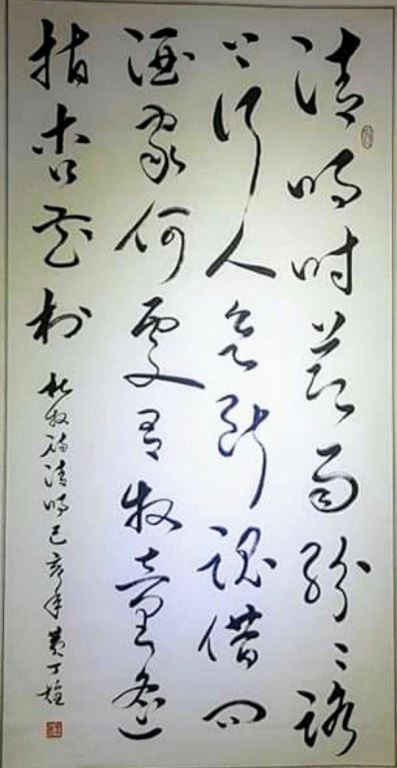 清明时节雨纷々路
上行人欲断魂借问
酒家何处有牧童遥
指杏花村
杜牧诗清明己亥年黄丁